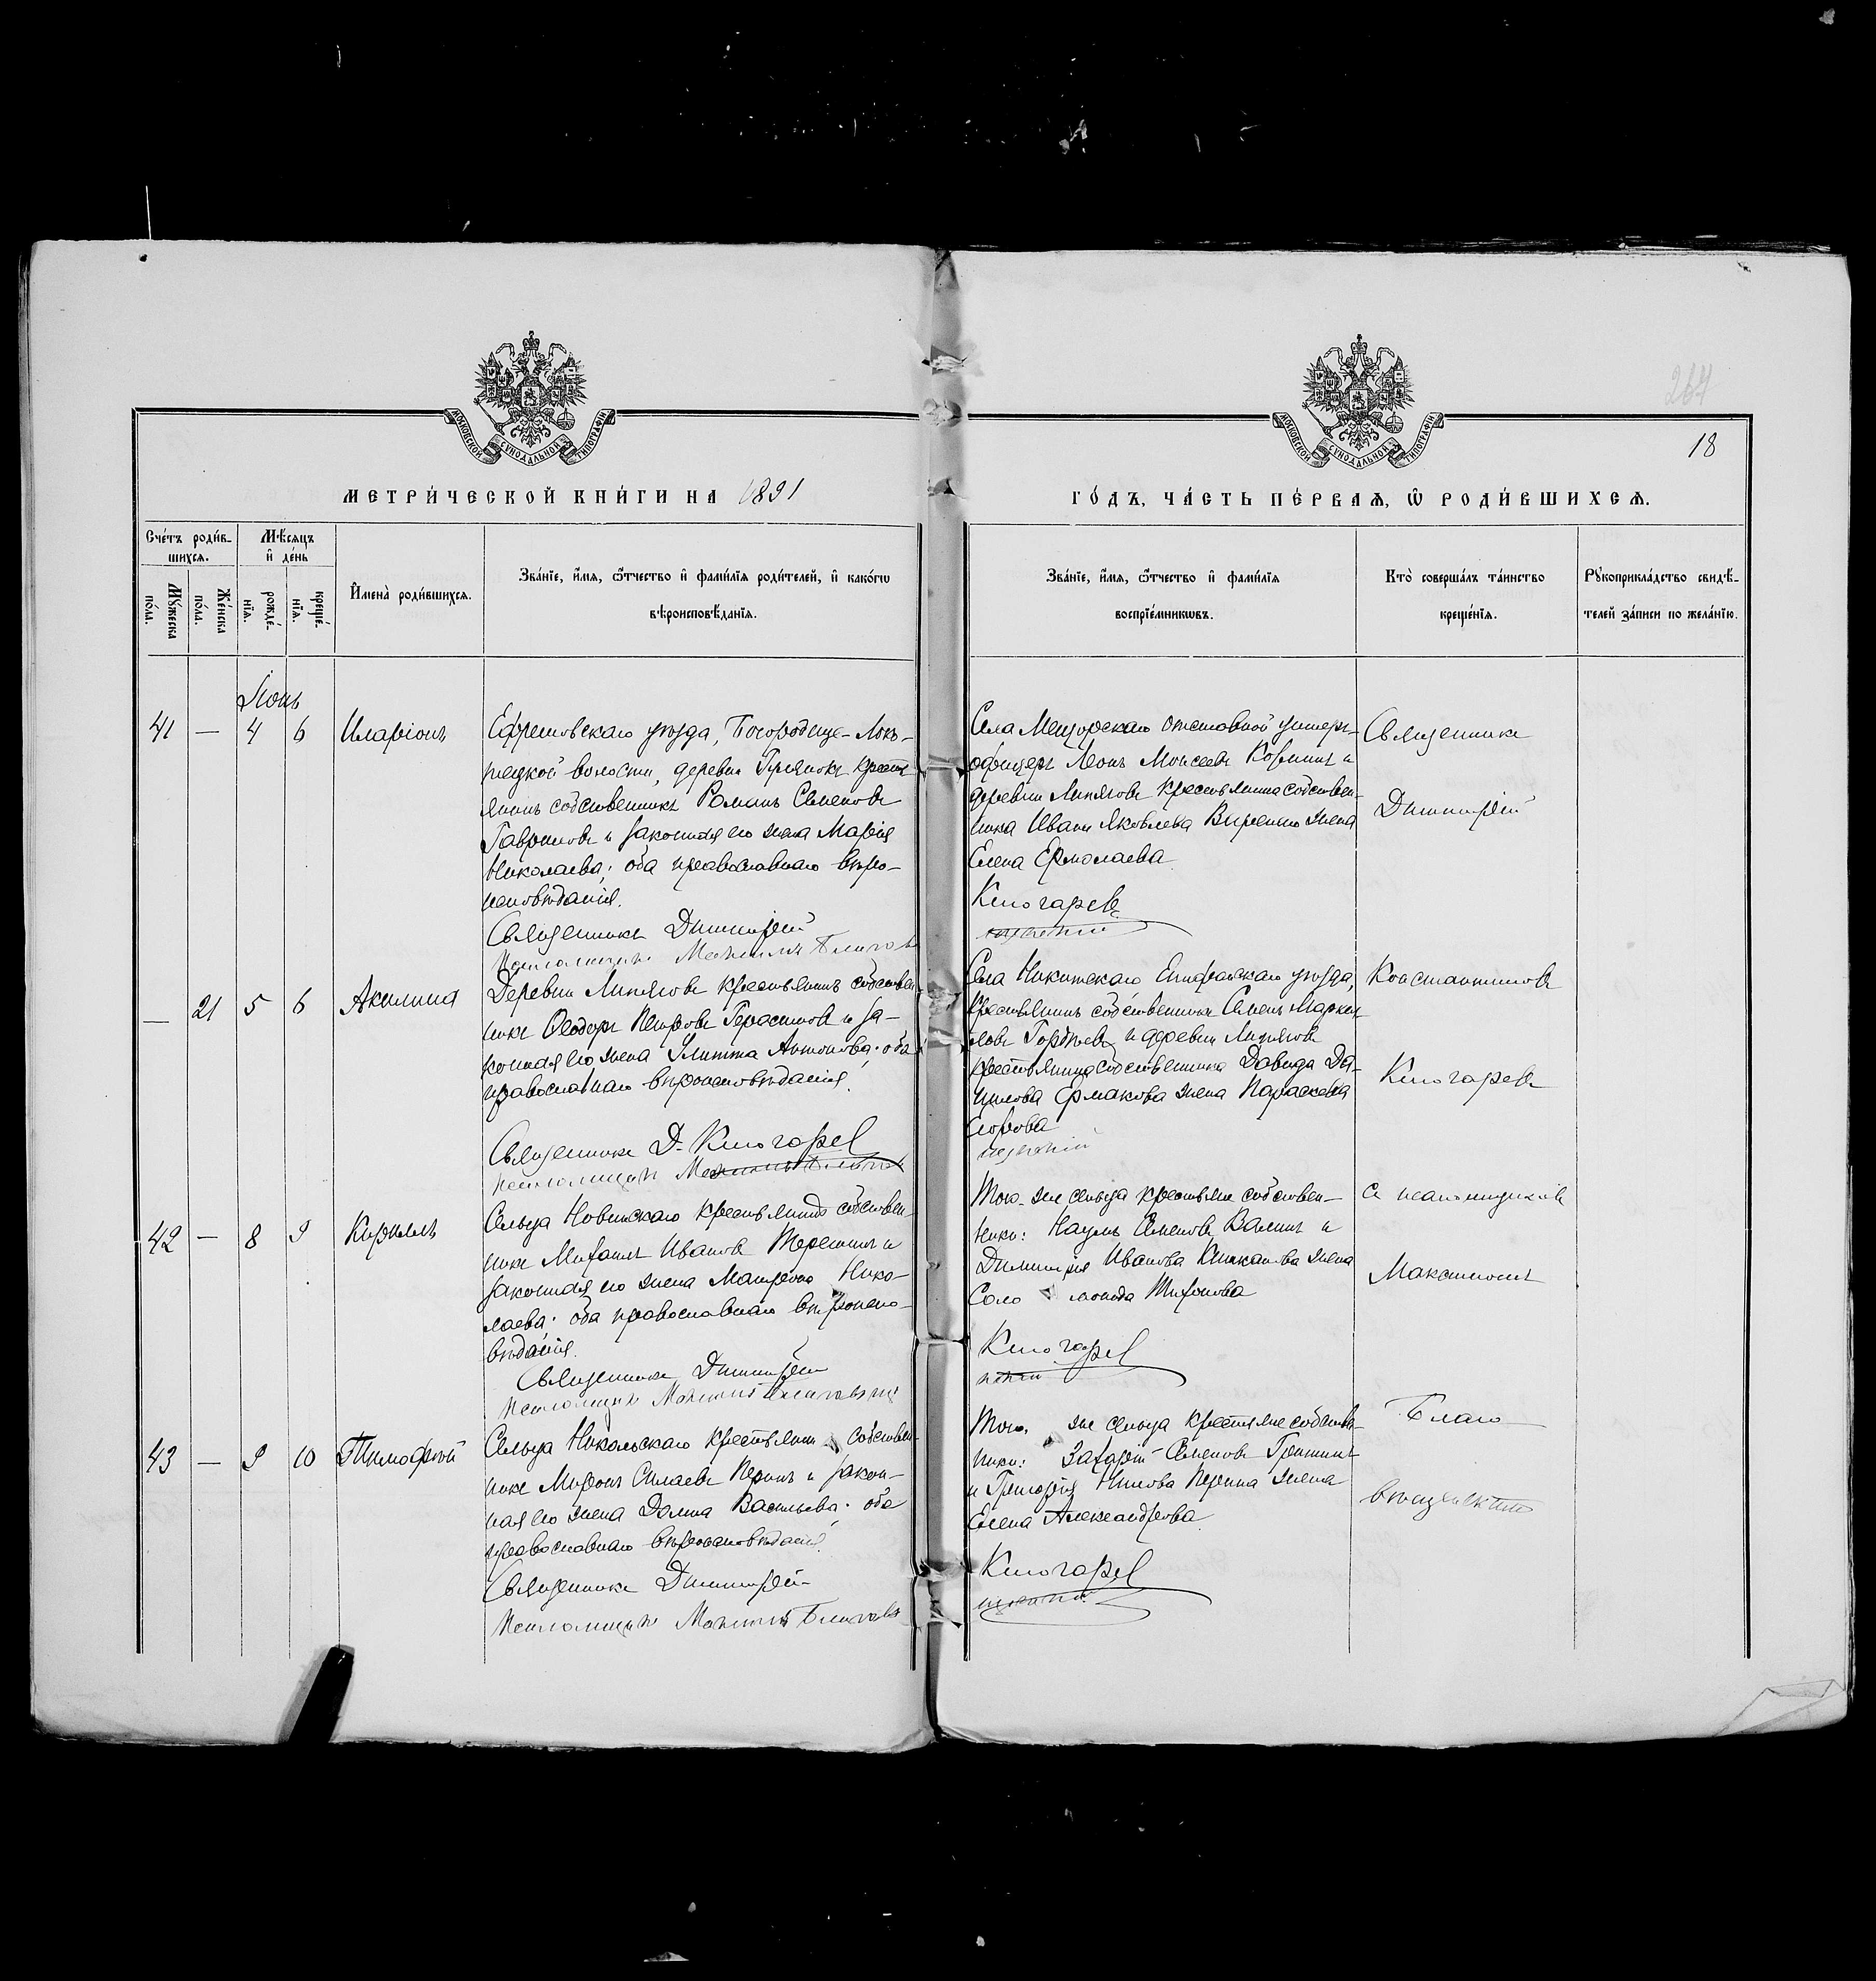 264
18
МОСКОВСКОЙ СѴНОДАЛЬНОЙ ТИПОГРАФІИ
МОСКОВСКОЙ СѴНОДАЛЬНОЙ ТИПОГРАФІИ
МЕТРИ́ЧЕСКОЙ КНИ́ГИ НА 1891
ГО́ДЪ, ЧА́СТЬ ПЕ́РВАѦ, Ѡ҆ РОДИ́ВШИХСѦ.
Сче́тъ роди́в-
шихсѧ.
Мꙋ́жеска
по́ла.
Же́нска
по́ла.
Мѣ́сѧцъ
и҆ де́нь
рожде́-
нїѧ.
креще́-
нїѧ.
И҆мена̀ роди́вшихсѧ.
Зва́нїе, и҆́мѧ, ѻ҆́тчество и҆ фами́лїѧ роди́телей, и҆ како́гѡ
вѣроисповѣ́данїѧ.
Зва́нїе, и҆́мѧ, ѻ҆́тчество и҆ фами́лїѧ
воспрїе́мникѡвъ.
Кто̀ соверша́лъ та́инство
креще́нїѧ.
Рꙋкоприкла́дство свидѣ́-
телей за́писи по жела́нїю.
Іюнь
41 — 4 6 Иларіонъ
Ефремовскаго уѣзда, Богородице-Локо-
тецкой волости, деревни крестья
янинъ собственникъ Романъ Семеновъ
Гавриловъ и законная его жена Марія
Николаева; оба православнаго вѣро-
исповѣданія.
Священникъ Димитрій
Псаломщикъ
Села Мещерскаго отставной унтеръ-
офицеръ Леонъ Моисеевъ и
деревни Липяговъ крестьянина собствен-
ника Ивана Яковлева жена
Елена Ермолаева
Ключаревъ
Священникъ
Димитрій
— 21 5 6 Акилина
Деревни Липяговъ крестьянинъ собствен
никъ Ѳеодоръ Петровъ Герасимовъ и за-
конная его жена Улитта Антонова; оба
православнаго вѣроисповѣданія.
Священникъ Д. Ключарев
Псаломщикъ
Села Никитскаго Епифанскаго уѣзда,
крестьянинъ собственникъ Семенъ
Горбачевъ и деревни Липяговъ
крестьянина собственника Давида Да-
нилова Ермакова жена Параскева
Егорова
Константиновъ
Ключаревъ
42 — 8 9 Кириллъ
Сельца Новинскаго крестьянинъ собствен
никъ Михаилъ Ивановъ Терешинъ и
законная его жена Матрона Нико-
лаева; оба православнаго вѣроиспо-
вѣданія.
Священникъ Димитрій
Псаломщикъ
Того же сельца крестьяне собствен-
ники: Наумъ Семеновъ и
Димитрія Иванова жена
Соло монида Тихонова
Ключарев
Съ псаломщикомъ
Максимомъ
43 — 9 10 Тимофей
Сельца Никольскаго крестьянинъ собствен-
никъ Миронъ Силаевъ Перинъ и закон-
ная его жена Домна Васильева; оба
православнаго вѣроисповѣданія.
Священникъ Димитрій
Псаломщикъ
Того же сельца крестьяне собствен
ники: Захарій Семеновъ Гришинъ
и Григорія Перина жена
Елена Александрова
Ключарев
Благо
вѣщенскимъ